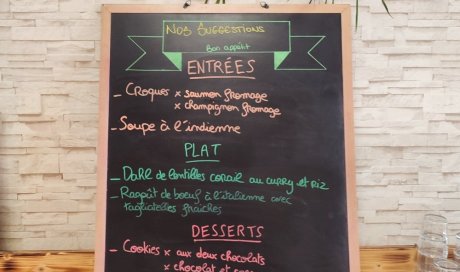 Nos Suggestions
Bon appétit
ENTRÉES
- Croques x saumon fromage
x champignon fromage
- Soupe à l'indienne
PLAT
- Dahl de lentilles corail au curry et riz
- Ragoût de boeuf à l'italienne avec
tagliatelles fraîches
DESSERTS
- Cookies x aux deux chocolats
x chocolat et